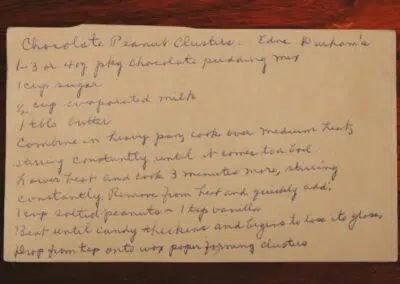 Chocolate Peanut Clusters. Edna Durham's
1-3 or 4oz pkg chocolate pudding mix
1 cup sugar
½ cup evaporated milk
1 tbls butter
Combine in heavy pan, cook over medium heat,
stirring constantly until it comes to a boil
Lower heat and cook 3 minutes more, stirring
constantly. Remove from heat and quickly add:
1 cup salted peanuts - 1 tsp vanilla
Beat until candy thickens and begins to lose its gloss,
Drop from tsp onto wax paper forming clusters